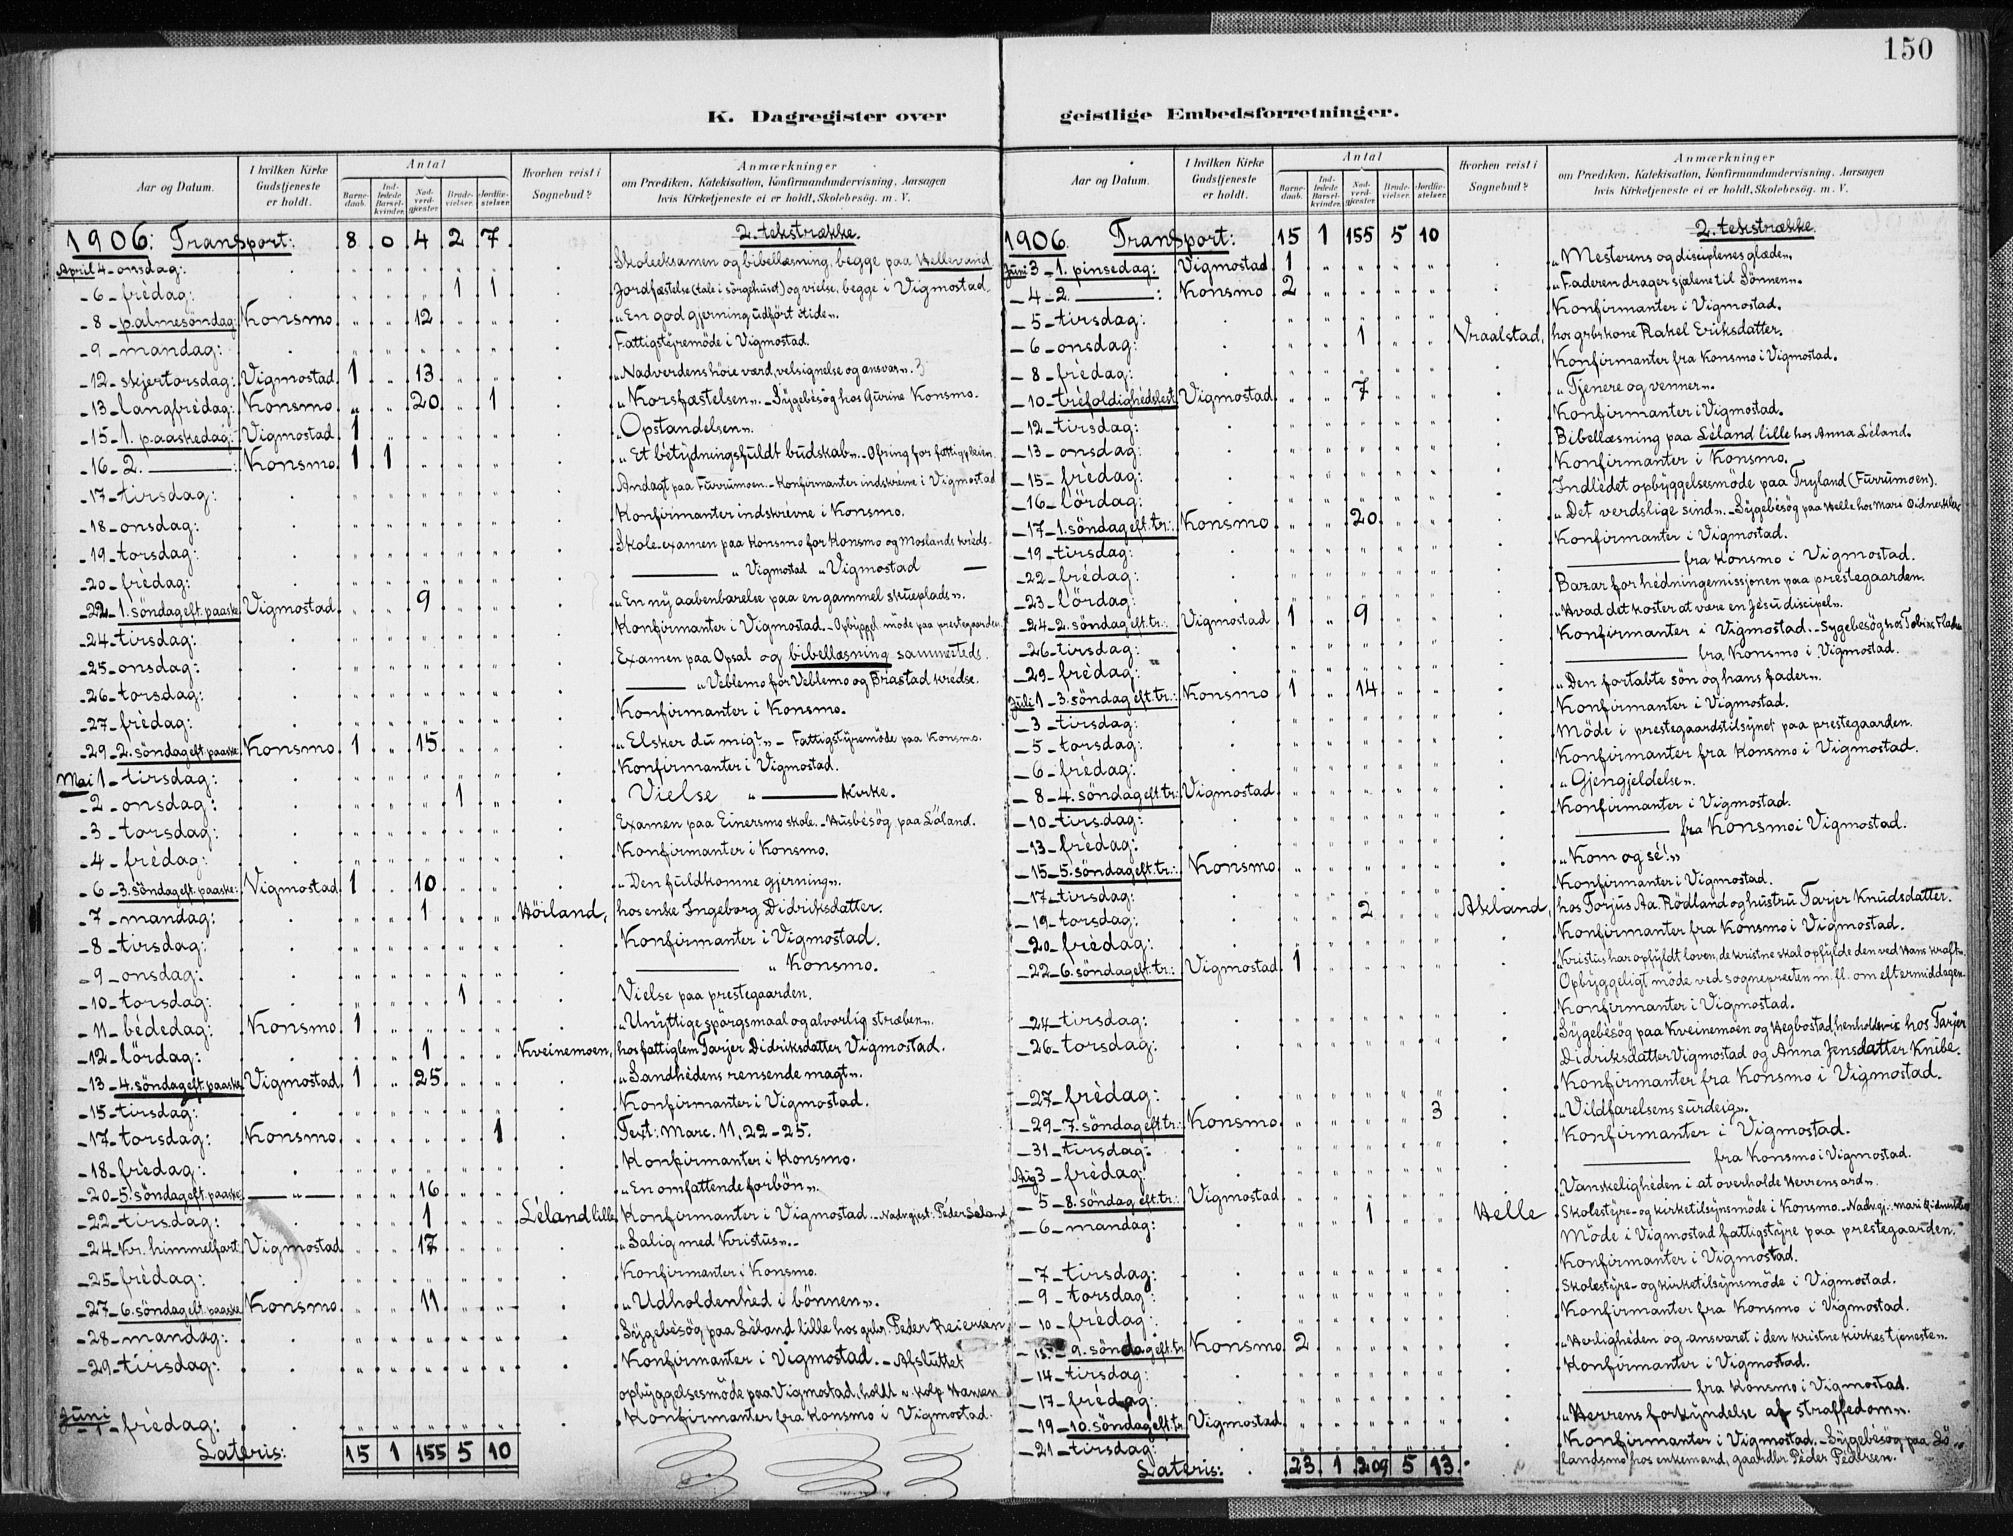 150
K. Dagregister over
Aar og Datum. I hvilken Kirke Gudstjeneste er holdt. Antal Barne-daab. Ind-ledede Barsel-kvinder. Nad-verd-gjester. Brude-vielser. Jordfæ-stelser. Hvorhen reist i Sognebud? Anmærkninger om Prædiken, Katekisation, Konfirmandundervisning, Aarsagen hvis Kirketjeneste ei er holdt, Skolebesøg. m. V.
1906: Transport: 8 0 4 2 7 2. tekstrække.
April 4 - onsdag: Skoleeksamen og bibellæsning, begge paa Hellevand
- 6 - frédag: 1 1 Jordfæstelse (tale i sörgehuset) og vielse, begge i Vigmostad.
- 8 - palmesöndag: Konsmo 12 „En god gjerning udfört itide„.
- 9 - mandag: Fattigstyremöde i Vigmostad.
- 12 - skjertorsdag: Vigmostad 1 13 „Nadverdens höie værd, velsignelse og ansvar„.
- 13 - langfrédag: Konsmo 20 1 „Korsfæstelsen„. - Sygebésög hos Gurine Konsmo.
- 15 - 1. paaskedag: Vigmostad 1 „Opstandelsen„.
- 16 - 2. — : Konsmo 1 1 „Et betydningsfuldt budskab„. - Ofring for fattigpleien.
- 17 - tirsdag: Andagt paa Furrumoen. - Konfirmanter indskrevne i Vigmostad
- 18 - onsdag: Konfirmanter indskrévne i Konsmo.
- 19 - torsdag: Skole-examen paa Konsmo for Konsmo og Moslands kréds.
- 20 - frédag: — „ Vigmostad „ Vigmostad —
- 22 - 1. söndag eft. paaske Vigmostad 9 „En ny aabenbarelse paa en gammel skueplads„.
- 24 - tirsdag: Konfirmanter i Vigmostad. - Opbyggel. möde paa prestegaarden
- 25 - onsdag: Examen paa Opsal og bibellæsning sammesteds.
- 26 - torsdag: — „ Veblemo for Veblemo og Brastad krédse.
- 27 - frédag: Konfirmanter i Konsmo.
- 29 - 2. söndag eft. paaske Konsmo 1 15 „Elsker du mig?„ - Fattigstyremöde paa Konsmo.
Mai 1 - tirsdag: Konfirmanter i Vigmostad.
- 2 - onsdag: 1 Vielse „ — Kirke.
- 3 - torsdag: Examen paa Einersmo skole. - Husbésög paa Löland.
- 4 - frédag: Konfirmanter i Konsmo.
- 6 - 3. söndag eft. paaske: Vigmostad 1 10 „Den fuldkomne gjerning„.
- 7 - mandag: 1 Hörland, hos enke Ingeborg Didriksdatter.
- 8 - tirsdag: Konfirmanter i Vigmostad.
- 9 - onsdag: — „ Konsmo.
- 10 - torsdag: 1 Vielse paa prestegaarden.
- 11 - bédedag: Konsmo 1 „Unyttige spörgsmaal og alvorlig stræben„.
- 12 - lördag: 1 Kveinemoen, hos fattiglem Tarjer Didriksdatter Vigmostad.
- 13 - 4. söndag eft. paaske Vigmostad 1 25 „Sandhédens rensende magt„.
- 15 - tirsdag: Konfirmanter i Vigmostad.
- 17 - torsdag: Konsmo 1 Text: Marc. 11, 22-25.
- 18 - frédag: Konfirmanter i Konsmo.
- 20 - 5. söndag eft. paaske: — „ — 16 „En omfattende forbön„.
- 22 - tirsdag: 1 Léland lille Konfirmanter i Vigmostad. - Nadvgjest: Péder Léland
- 24 - Kr. himmelfart: Vigmostad 17 „Salig med Kristus„. -
- 25 - frédag: Konfirmanter i Konsmo.
- 27 - 6. söndag eft. paaske Konsmo 11 „Udholdenhéd i bönnen„.
- 28 - mandag: Sygebésög paa Léland lille hos gbr. Peder Reiersen
- 29 - tirsdag: Konfirmanter i Vigmostad. - Afsluttet
opbyggelsesmöde paa Vigmostad, holdt v. kolp Hansen
Juni 1 - frédag: Konfirmanter fra Konsmo i Vigmostad.
Lateris: 15 1 155 5 10
geistlige Embedsforretninger.
Aar og Datum. I hvilken Kirke Gudstjeneste er holdt. Antal Barne-daab. Ind-ledede Barsel-kvinder. Nad-verd-gjæster. Brude-vielser. Jordfæ-stelser. Hvorhen reist i Sognebud? Anmærkninger om Prædiken, Katekisation, Konfirmandundervisning, Aarsagen hvis Kirketjeneste ei er holdt, Skolebesøg. m. V.
1906. Transport: 15 1 155 5 10 2. tekstrække
Juni 3 - 1. pinsedag: Vigmostad 1 „Mesterens og disciplenes glæde„.
- 4 - 2. — : Konsmo 2 „Faderen drager sjælene til Sönnen„.
- 5 - tirsdag: Konfirmanter i Vigmostad.
- 6 - onsdag: 1 Vraalstad, hos grbrkone Rakel Eriksdatter.
- 8 - frédag: Konfirmanter fra Konsmo i Vigmostad.
- 10 - tréfoldighédsfest Vigmostad 7 „Tjenere og venner„.
- 12 - tirsdag: Konfirmanter i Vigmostad.
- 13 - onsdag: Bibellæsning paa Léland lille hos Anna Léland.
- 15 - frédag: Konfirmanter i Konsmo.
- 16 - lördag: Indlédet opbyggelsesmöde paa Tryland (Furrumoen).
- 17 - 1. söndag eft. tr.: Konsmo 20 „Det verdslige sind„. - Sygebésög paa Helle hos Mari
- 19 - tirsdag: Konfirmanter i Vigmostad.
- 22 - frédag: — fra Konsmo i Vigmostad.
- 23 - lördag: Bazar for hédningemissjonen paa prestegaarden.
- 24 - 2. söndag eft. tr.: Vigmostad 1 9 „Hvad det koster at være en Jésu discipel„.
- 26 - tirsdag: Konfirmanter i Vigmostad. - Sygebésög hos Tobias
- 29 - frédag: — fra Konsmo i Vigmostad.
Juli 1 - 3. söndag eft. tr.: Konsmo 1 14 „Den fortabte sön og hans fader„.
- 3 - tirsdag: Konfirmanter i Vigmostad.
- 5 - torsdag: Möde i prestegaardstilsynet paa prestegaarden.
- 6 - frédag: Konfirmanter fra Konsmo i Vigmostad.
- 8 - 4. söndag eft. tr: Vigmostad „Gjengjeldelse„.
- 10 - tirsdag: Konfirmanter i Vigmostad.
- 13 - frédag: — fra Konsmo i Vigmostad.
- 15 - 5. söndag eft. tr.: Konsmo „Kom og sé!„
- 17 - tirsdag: Konfirmanter i Vigmostad.
- 19 - torsdag: 2 Akland, hos Torjus Aa. Rödland og hustru Tarjer Knudsdatter.
- 20 - frédag: Konfirmanter fra Konsmo i Vigmostad.
- 22 - 6. söndag eft. tr.: Vigmostad 1 „Kristus har opfyldt loven, de kristne skal opfylde den ved Hans kraft„.
Opbyggeligt möde ved sognepresten m. fl. om eftermiddagen.
- 24 - tirsdag: Konfirmanter i Vigmostad.
- 26 - torsdag: Sygebésög paa Kveinemoen og Hegbostad, henholdsvis hos Tarjer
Didriksdatter Vigmostad og Anna Jensdatter Knibe.
- 27 - frédag: Konfirmanter fra Konsmo i Vigmostad.
- 29 - 7. söndag eft. tr.: Konsmo 3 „Vildfarelsens surdeig„.
- 31 - tirsdag: Konfirmanter i Vigmostad.
Aug 3 - frédag: — fra Konsmo i Vigmostad.
- 5 - 8. söndag eft. tr.: Vigmostad „Vanskelighéden i at overholde Herrens ord„.
- 6 - mandag: 1 Helle Skolestyre- og kirketilsynsmöde i Konsmo. - Nadvgj.: Mari
Möde i Vigmostad fattigstyre paa prestegaarden.
- 7 - tirsdag: Konfirmanter i Vigmostad.
- 9 - torsdag: Skolestyre- og kirketilsynsmöde i Vigmostad.
- 10 - frédag: Konfirmanter fra Konsmo i Vigmostad.
- 9. söndag eft. tr Konsmo 2 „Herligheden og ansvaret i den kristne kirkes tjeneste„.
- 14 - tirsdag: Konfirmanter i Vigmostad.
- 17 - frédag: — fra Konsmo i Vigmostad.
- 19 - 10. söndag eft. tr. Vigmostad „Herrens forkyndelse af straffedom„.
- 21 - tirsdag: Konfirmanter i Vigmostad. - Sygebésög paa Lö
landsmo hos enkemand, gaardbr Péder Pédersen.
Lateris: 23 1 209 5 13